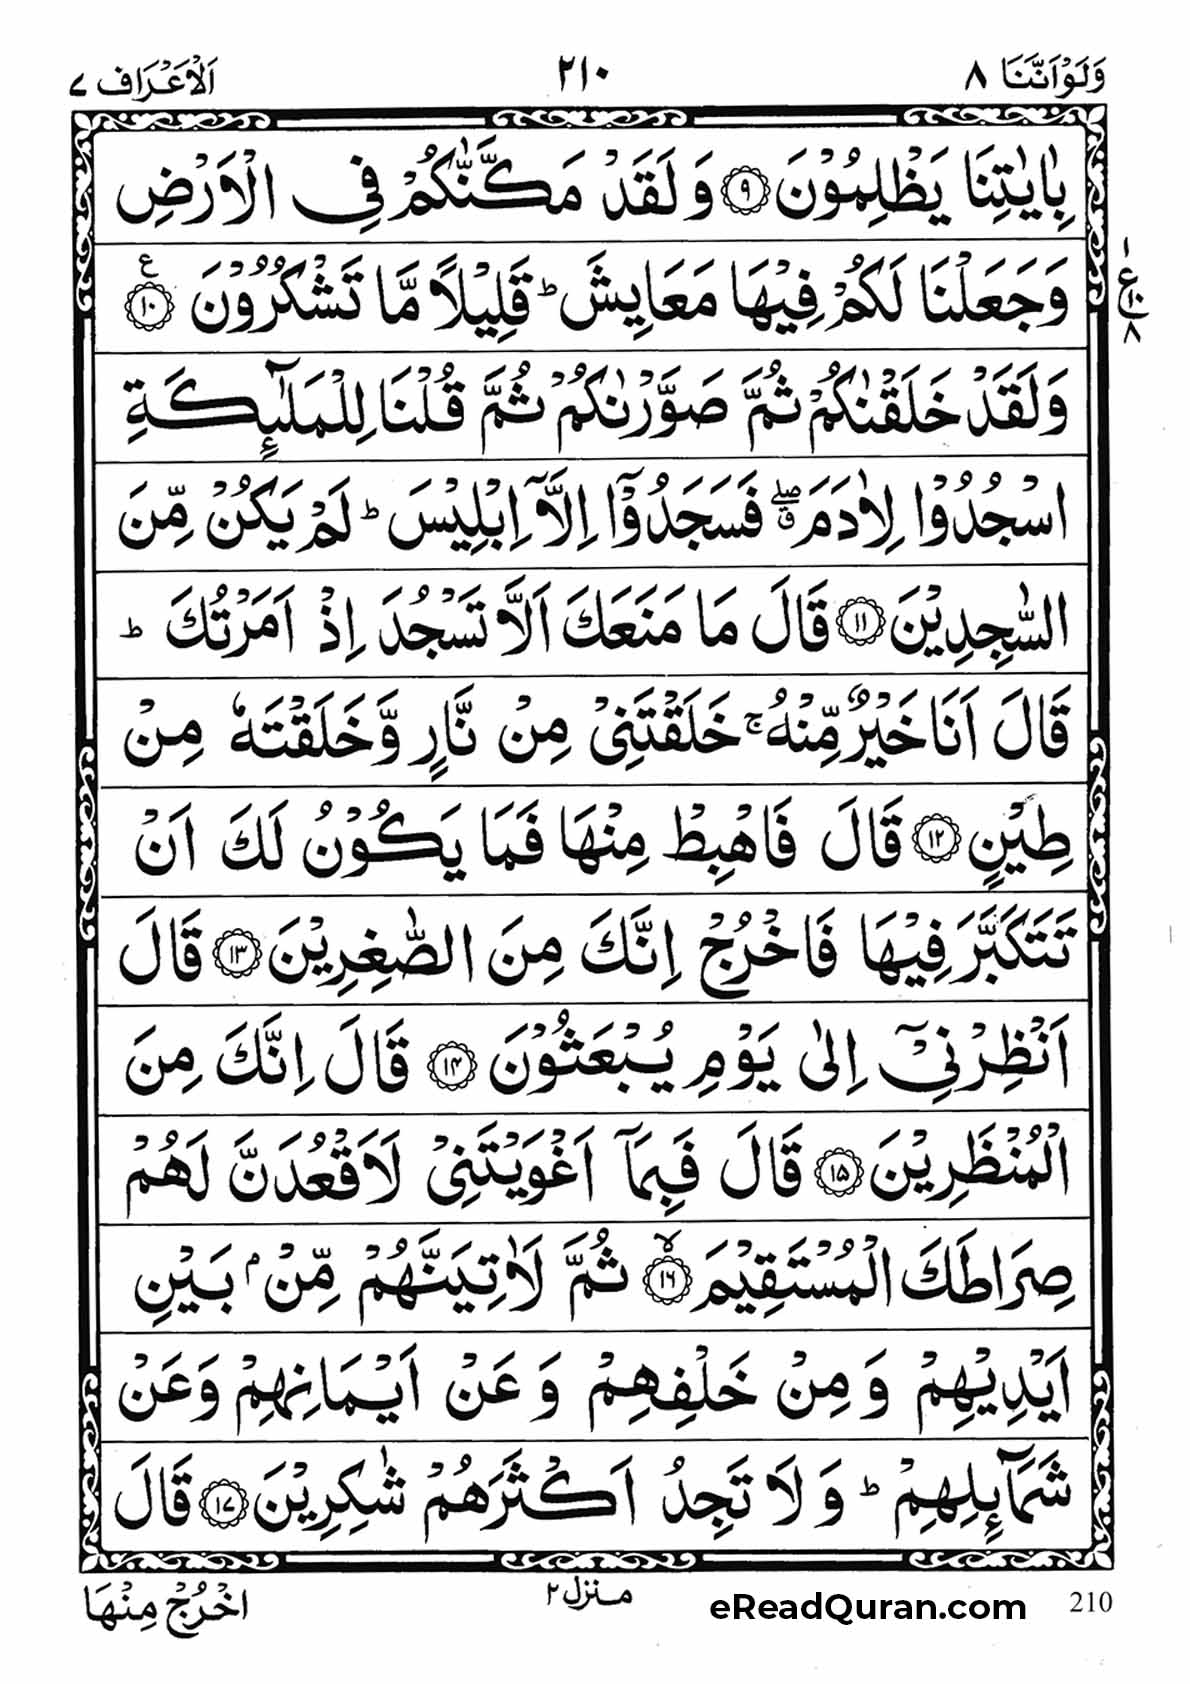 وَلَوْاَنَّنَا ٨
٢١٠
اَلْاَعْرَاف ٧
بِاٰيٰتِنَا يَظْلِمُوْنَ ۝٩ وَ لَقَدْ مَكَّنّٰكُمْ فِي الْاَرْضِ
وَجَعَلْنَا لَكُمْ فِيْهَا مَعَايِشَ ؕ قَلِيْلًا مَّا تَشْكُرُوْنَ ۝١٠ ع
١ ع ١٠ ٨
وَلَقَدْ خَلَقْنٰكُمْ ثُمَّ صَوَّرْنٰكُمْ ثُمَّ قُلْنَا لِلْمَلٰٓىِٕكَةِ
اسْجُدُوْا لِاٰدَمَ ۖۗ فَسَجَدُوْۤا اِلَّاۤ اِبْلِيْسَ ؕ لَمْ يَكُنْ مِّنَ
السّٰجِدِيْنَ ۝١١ قَالَ مَا مَنَعَكَ اَلَّا تَسْجُدَ اِذْ اَمَرْتُكَ ؕ
قَالَ اَنَا خَيْرٌ مِّنْهُ ۚ خَلَقْتَنِيْ مِنْ نَّارٍ وَّخَلَقْتَهٗ مِنْ
طِيْنٍ ۝١٢ قَالَ فَاهْبِطْ مِنْهَا فَمَا يَكُوْنُ لَكَ اَنْ
تَتَكَبَّرَ فِيْهَا فَاخْرُجْ اِنَّكَ مِنَ الصّٰغِرِيْنَ ۝١٣ قَالَ
اَنْظِرْنِيْۤ اِلٰى يَوْمِ يُبْعَثُوْنَ ۝١٤ قَالَ اِنَّكَ مِنَ
الْمُنْظَرِيْنَ ۝١٥ قَالَ فَبِمَاۤ اَغْوَيْتَنِيْ لَاَقْعُدَنَّ لَهُمْ
صِرَاطَكَ الْمُسْتَقِيْمَ ۝١٦ ۙ ثُمَّ لَاٰتِيَنَّهُمْ مِّنْۢ بَيْنِ
اَيْدِيْهِمْ وَ مِنْ خَلْفِهِمْ وَ عَنْ اَيْمَانِهِمْ وَعَنْ
شَمَآىِٕلِهِمْ ؕ وَ لَا تَجِدُ اَكْثَرَهُمْ شٰكِرِيْنَ ۝١٧ قَالَ
اخْرُجْ مِنْهَا
منزل ٢
eReadQuran.com
210